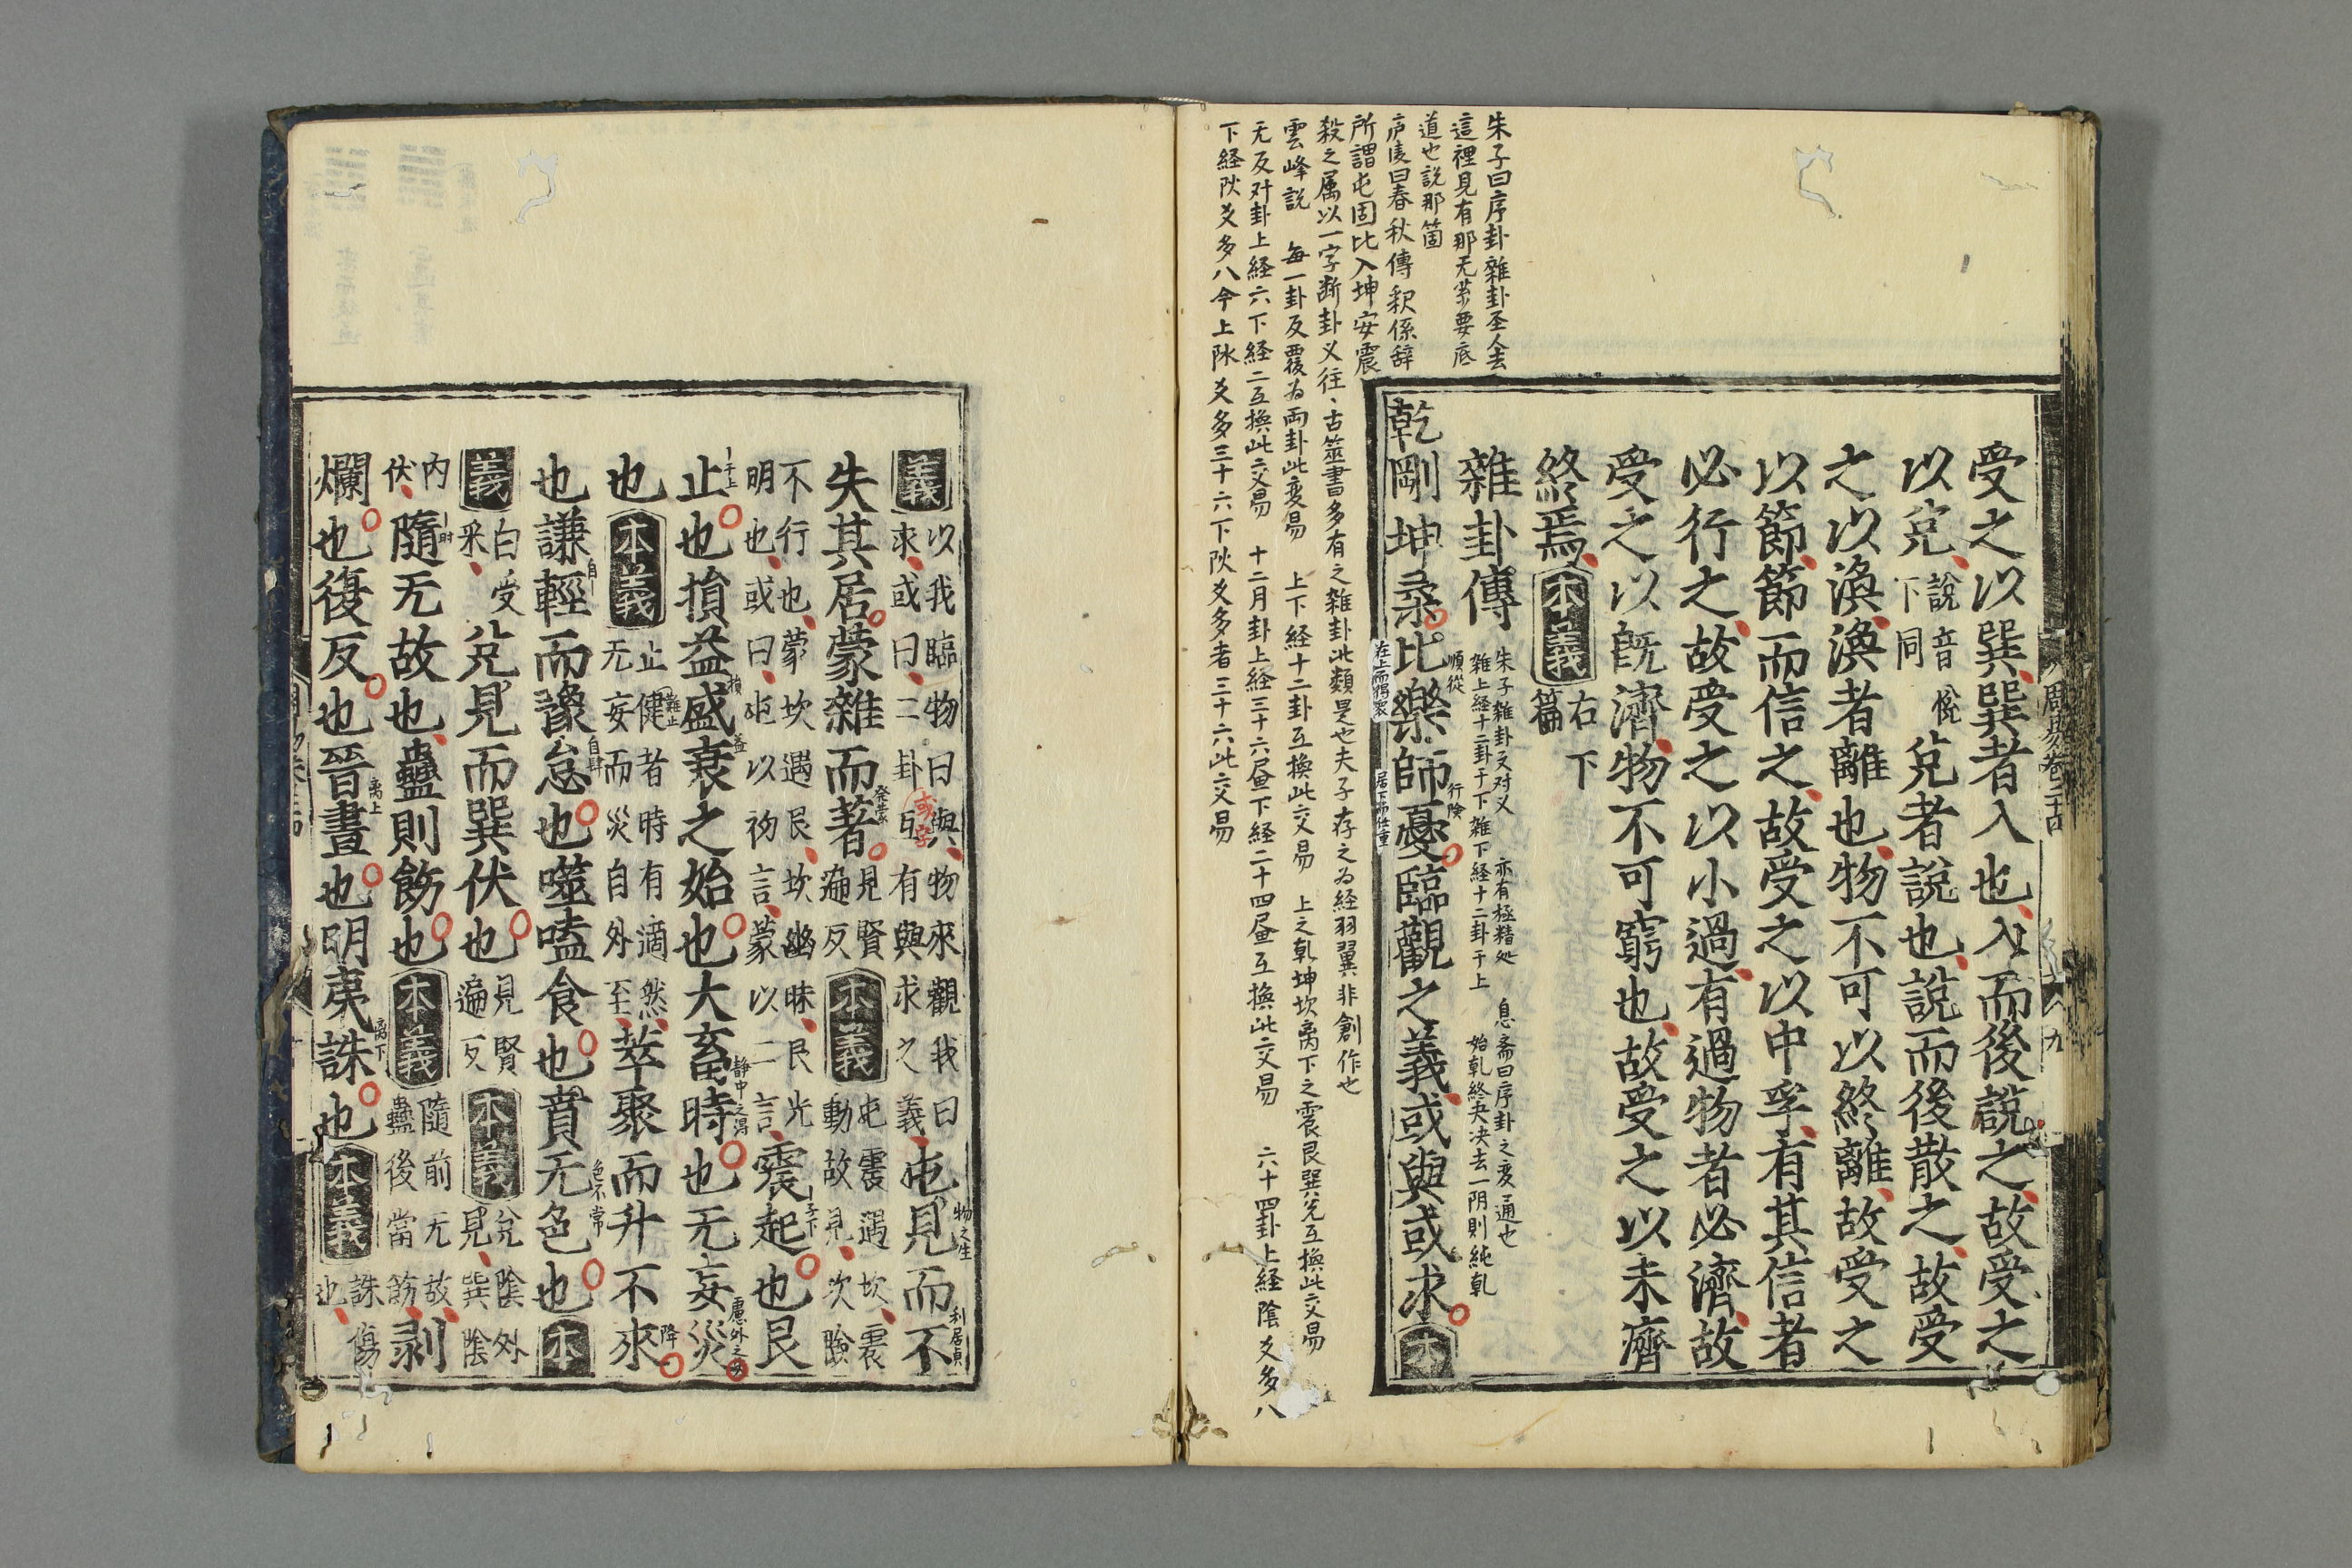 受之以巽巽者入也入而後說之故受之
以兌 說音悅下同 兌者說也說而後散之故受
之以渙渙者離也物不可以終離故受之
以節節而信之故受之以中孚有其信者
必行之故受之以小過有過物者必濟故
受之以旣濟物不可窮也故受之以未濟
終焉 本義 右下篇
雜卦傳
乾剛坤柔比樂師憂臨觀之義或與或求 本
順從
行険
在上而得衆
居下而任重
周易卷二十四
九
朱子曰序卦雜卦圣人去
這裡見有那无緊要底
道也説那箇
庐陵曰春秋傳釈係辞
所謂屯固比入坤安震
殺之属以一字断卦义往、古筮書多有之雑卦此類是也夫子存之為経羽翼非創作也
雲峰説 每一卦反覆為両卦此変易 上下経十二卦互換此交易 上之乹坤坎离下之震艮巽兌互換此交易
无反対卦上経六下経二互換此交易 十二月卦上経三十六昼下経二十四昼互換此交易 六十四卦上経陰爻多八
下経阦爻多八今上阦爻多三十六下阦爻多者三十六此交易
朱子雑卦反対义 亦有極精処 息斎曰序卦之変通也
雑上経十二卦于下雑下経十二卦于上 始乹終夬決去一阴則純乹
義 以我臨物曰與物來觀我曰求或曰二卦互有與求之義 屯見而不
失其居蒙雜而著 見賢遍反 本義 屯震遇坎震動故見坎險
不行也蒙坎遇艮坎幽昧艮光明也或曰屯以初言蒙以二言 震起也艮
止也損益盛衰之始也大畜時也无妄災
也 本義 止健者時有適然无妄而災自外至 萃聚而升不來
也謙輕而豫怠也噬嗑食也賁无色也 本
義 白受采 兌見而巽伏也 見賢遍反 本義 兌陰外見巽陰
內伏 隨无故也蠱則飭也 本義 隨前无故蠱後當飭 剥
爛也復反也晉晝也明夷誅也 本義 誅傷也
物之生
利居貞
発蒙
静中之得
色不常
降
离上
离下